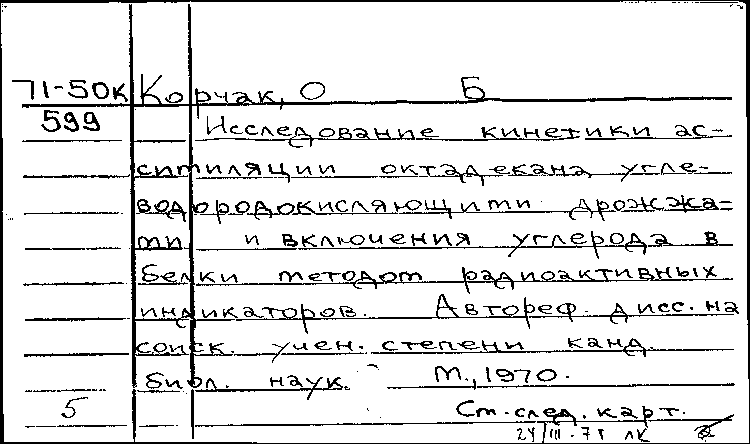 71-50к Корчак, О Б
599 Исследование кинетики ас-
симиляции октадекана угле-
водородокисляющими дрожжа-
ми и включения углерода в
белки методом радиоактивных
индикаторов. Автореф. дисс. на
соиск. учен. степени канд.
биол. наук. М., 1970.
5 См. след. карт.
24/III-71 лк